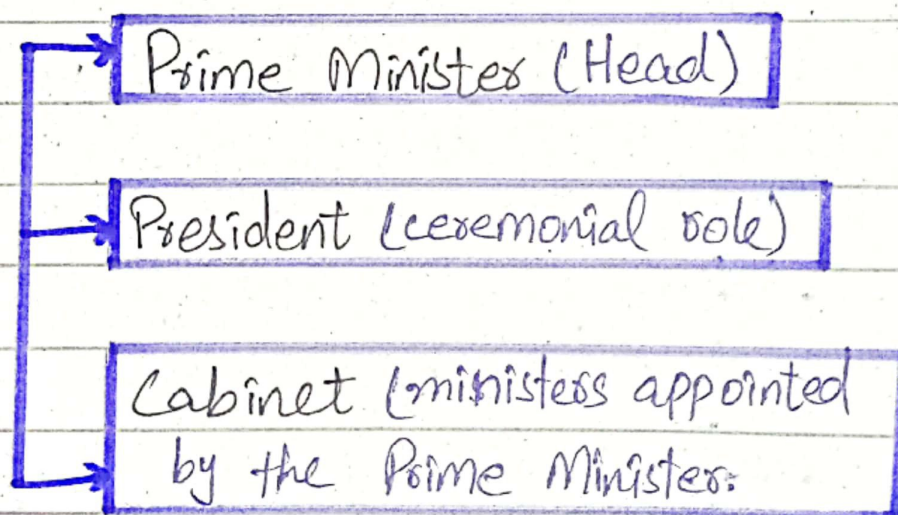 Prime Minister (Head)
President (ceremonial role)
Cabinet (ministers appointed
by the Prime Minister.